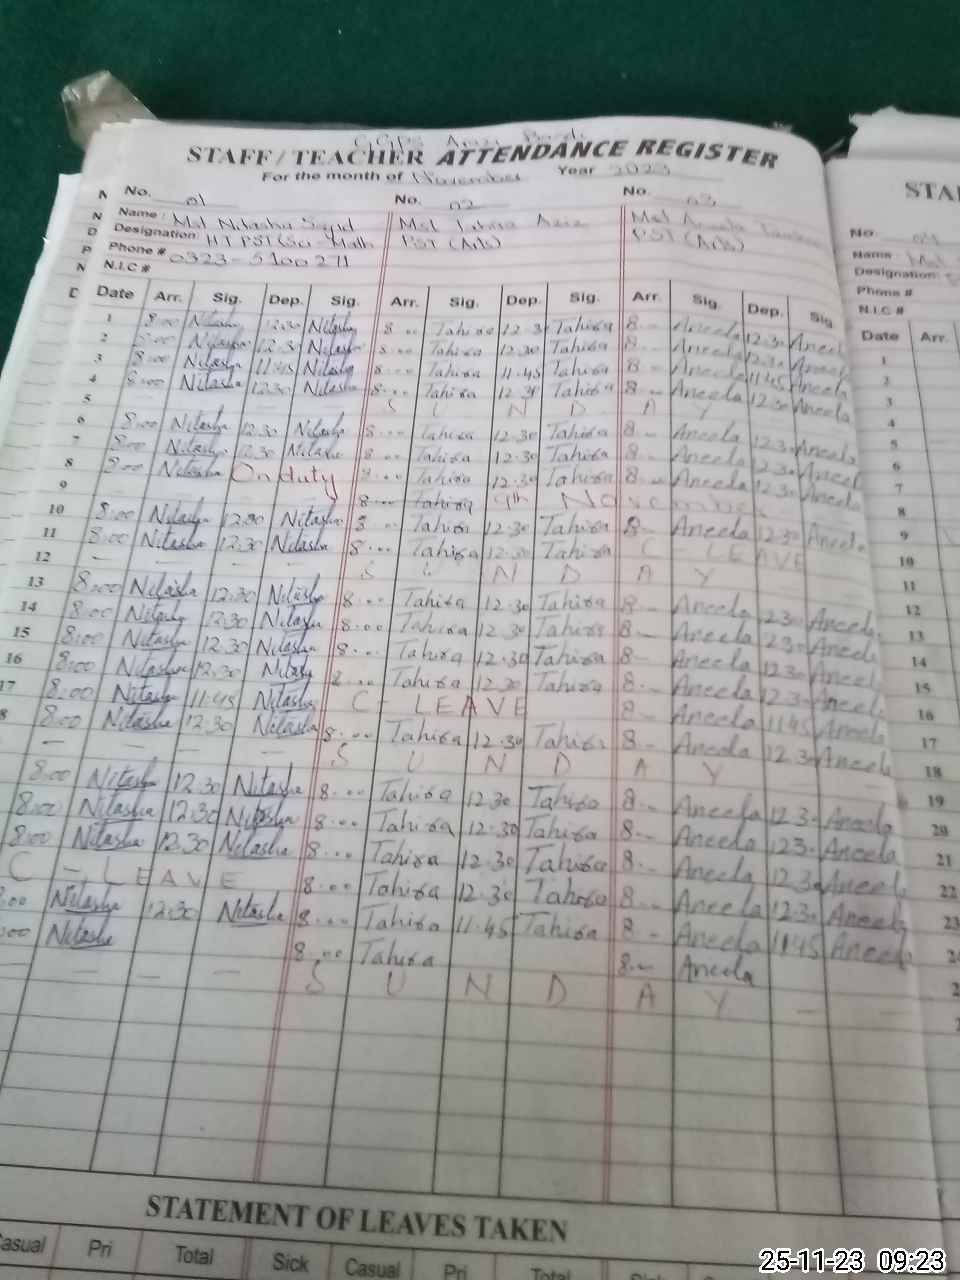 STAFF / TEACHER ATTENDANCE REGISTER
For the month of November Year 2023
No. 01 No. 02 No. 03
Name : Mst Nitasha Syed Mst Tahira Aziz Mst Aneela
Designation: HT PST (Sci-Math) PST (Arts) PST (Arts)
Phone # 0323-5100271
N.I.C #
Date Arr. Sig. Dep. Sig. Arr. Sig. Dep. Sig. Arr. Sig. Dep. Sig.
1 8:00 Nitasha 12:30 Nitasha 8:00 Tahira 12.30 Tahira 8:- Aneela 12:30 Aneela
2 8:00 Nitasha 12:30 Nitasha 8:00 Tahira 12.30 Tahira 8:- Aneela 12:30 Aneela
3 8:00 Nitasha 11:45 Nitasha 8:00 Tahira 11.45 Tahira 8:- Aneela 11:45 Aneela
4 8:00 Nitasha 12:30 Nitasha 8:00 Tahira 12.30 Tahira 8:- Aneela 12:30 Aneela
5 — — — — S U N D A Y
6 8:00 Nitasha 12:30 Nitasha 8:00 Tahira 12.30 Tahira 8:- Aneela 12:30 Aneela
7 8:00 Nitasha 12:30 Nitasha 8:00 Tahira 12.30 Tahira 8:- Aneela 12:30 Aneela
8 8:00 Nitasha On duty 8:00 Tahira 12.30 Tahira 8:- Aneela 12:30 Aneela
9 8:00 Tahira 9th November
10 8:00 Nitasha 12:30 Nitasha 8:00 Tahira 12.30 Tahira 8:- Aneela 12:30 Aneela
11 8:00 Nitasha 12:30 Nitasha 8:00 Tahira 12.30 Tahira C - LEAVE
12 — — — — S U N D A Y
13 8:00 Nitasha 12:30 Nitasha 8:00 Tahira 12.30 Tahira 8:- Aneela 12:30 Aneela
14 8:00 Nitasha 12:30 Nitasha 8:00 Tahira 12.30 Tahira 8:- Aneela 12:30 Aneela
15 8:00 Nitasha 12.30 Nitasha 8:00 Tahira 12.30 Tahira 8:- Aneela 12:30 Aneela
16 8:00 Nitasha 12.30 Nitasha 8:00 Tahira 12.30 Tahira 8:- Aneela 12:30 Aneela
17 8:00 Nitasha 11:45 Nitasha C - LEAVE 8:- Aneela 11:45 Aneela
8 8:00 Nitasha 12.30 Nitasha 8:00 Tahira 12.30 Tahira 8:- Aneela 12:30 Aneela
— — — — S U N D A Y
8:00 Nitasha 12.30 Nitasha 8:00 Tahira 12.30 Tahira 8:- Aneela 12:30 Aneela
8:00 Nitasha 12:30 Nitasha 8:00 Tahira 12.30 Tahira 8:- Aneela 12:30 Aneela
8:00 Nitasha 12.30 Nitasha 8:00 Tahira 12.30 Tahira 8:- Aneela 12:30 Aneela
C - LEAVE 8:00 Tahira 12.30 Tahira 8:- Aneela 12:30 Aneela
:00 Nitasha 12:30 Nitasha 8:00 Tahira 11.45 Tahira 8:- Aneela 11:45 Aneela
:00 Nitasha 8:00 Tahira 8:- Aneela
— — — S U N D A Y — —
STATEMENT OF LEAVES TAKEN
asual Pri Total Sick Casual Pri Total
STA
No. 04
Name : Mst
Designation:
Phone #
N.I.C #
Date Arr.
1
2
3
4
5
6
7
8
9
10
11
12
13
14
15
16
17
18
19
20
21
22
23
25-11-23 09:23